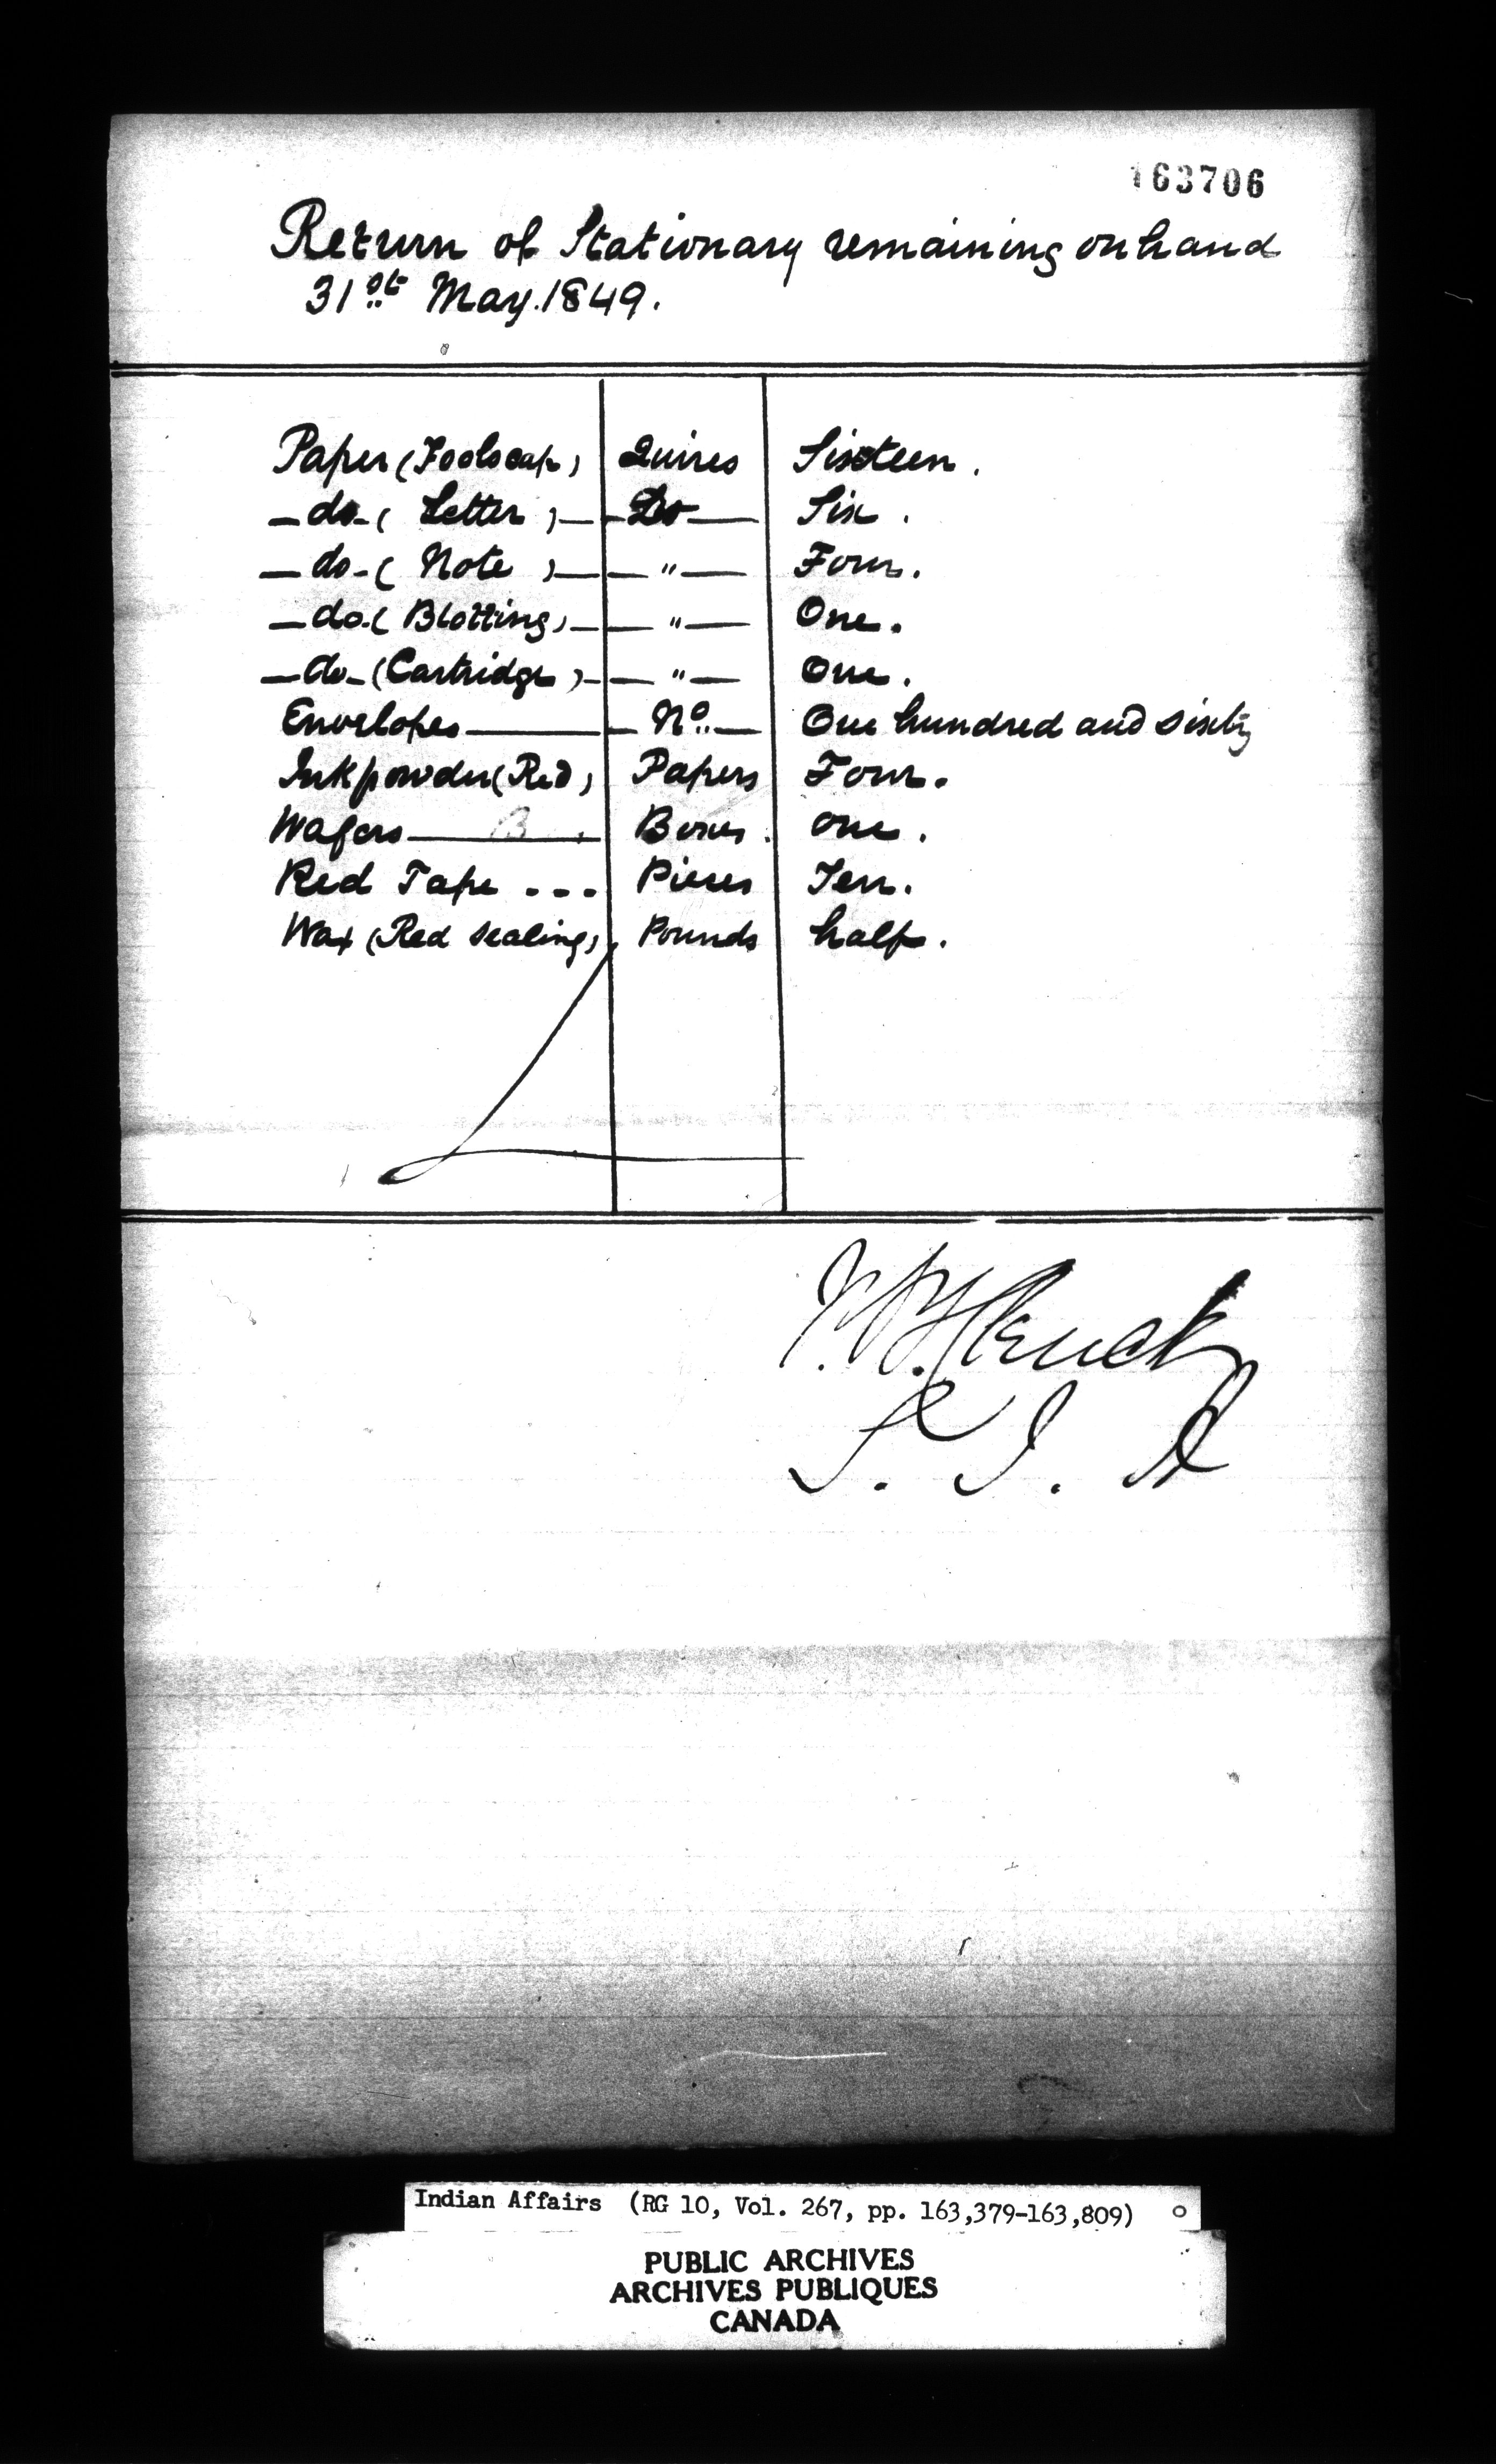 163706
Return of Stationary remaining on hand
31st May. 1849.
Paper (Foolscap) Quires Sixteen.
— do - ( Letter ) — Do — Six.
— do - ( Note ) — — " — Four.
— do. ( Blotting ) — — " — One.
— do - (Cartridge) - — " — One.
Envelopes — — No. — One hundred and sixty
Ink powder (Red) Papers Four.
Wafers — Boxes. one.
Red Tape - - - Pieces Ten.
Wax (Red sealing), Pounds half.
S. I. A
Indian Affairs (RG 10, Vol. 267, pp. 163,379-163,809)
PUBLIC ARCHIVES
ARCHIVES PUBLIQUES
CANADA